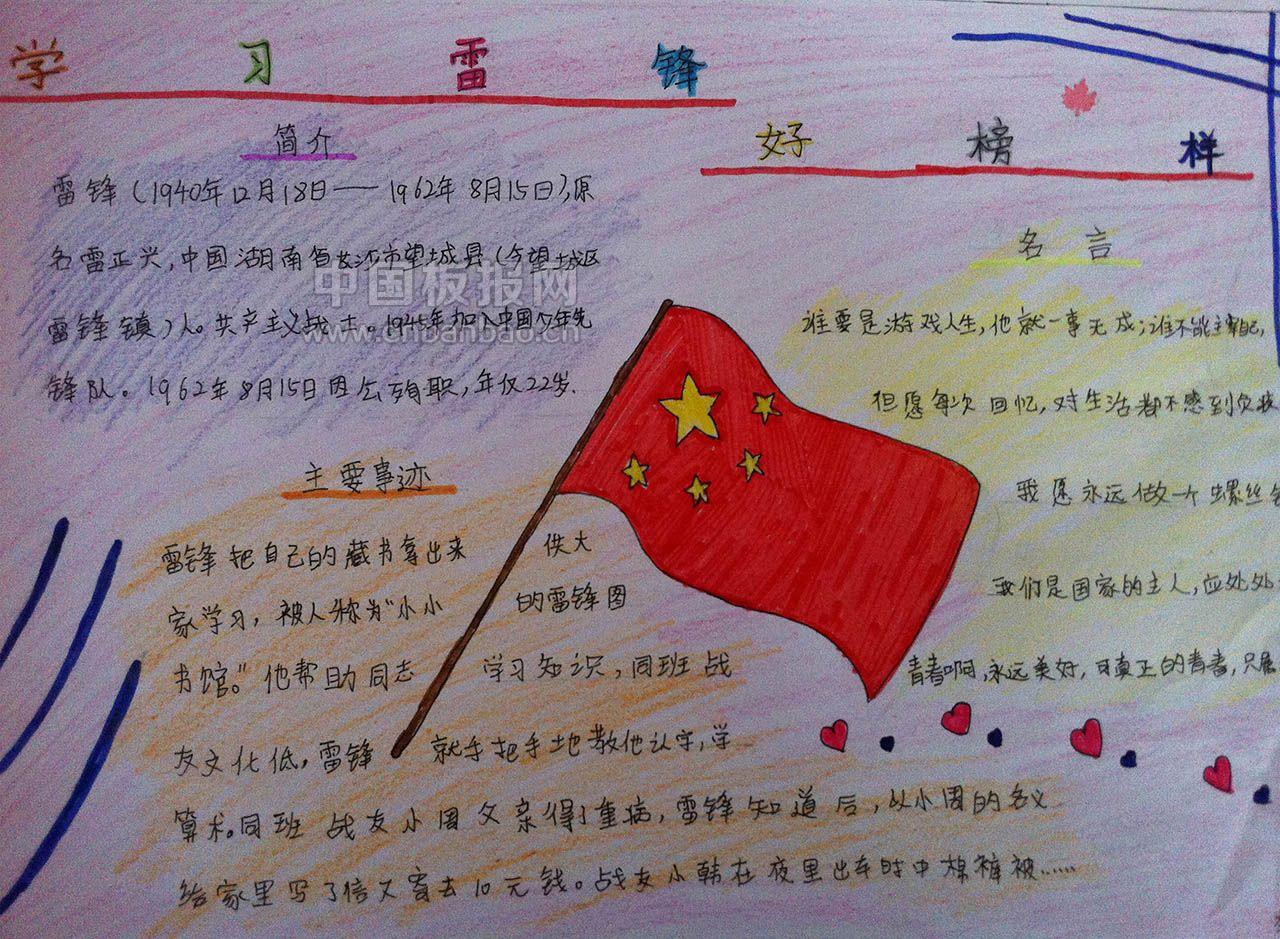 学习雷锋
好榜样
简介
雷锋（1940年12月18日——1962年8月15日），原
名雷正兴，中国湖南省长沙市望城县（今望城区
雷锋镇）人。共产主义战士。1945年加入中国少年先
锋队。1962年8月15日因公殉职，年仅22岁.
中国板报网
www.cnbanbao.cn
主要事迹
雷锋把自己的藏书拿出来 供大
家学习，被人称为“小小 的雷锋图
书馆。”他帮助同志 学习知识，同班战
友文化低，雷锋 就手把手地教他认字，学
算术。同班战友小周父亲得了重病，雷锋知道后，以小周的名义
给家里写了信又寄去10元钱。战友小韩在夜里出车时中棉裤被……
名言
谁要是游戏人生，他就一事无成；谁不能主宰自己，
但愿每次回忆，对生活都不感到负疚
我愿永远做一个螺丝
我们是国家的主人，应处处
青春啊，永远美好，可真正的青春，只属